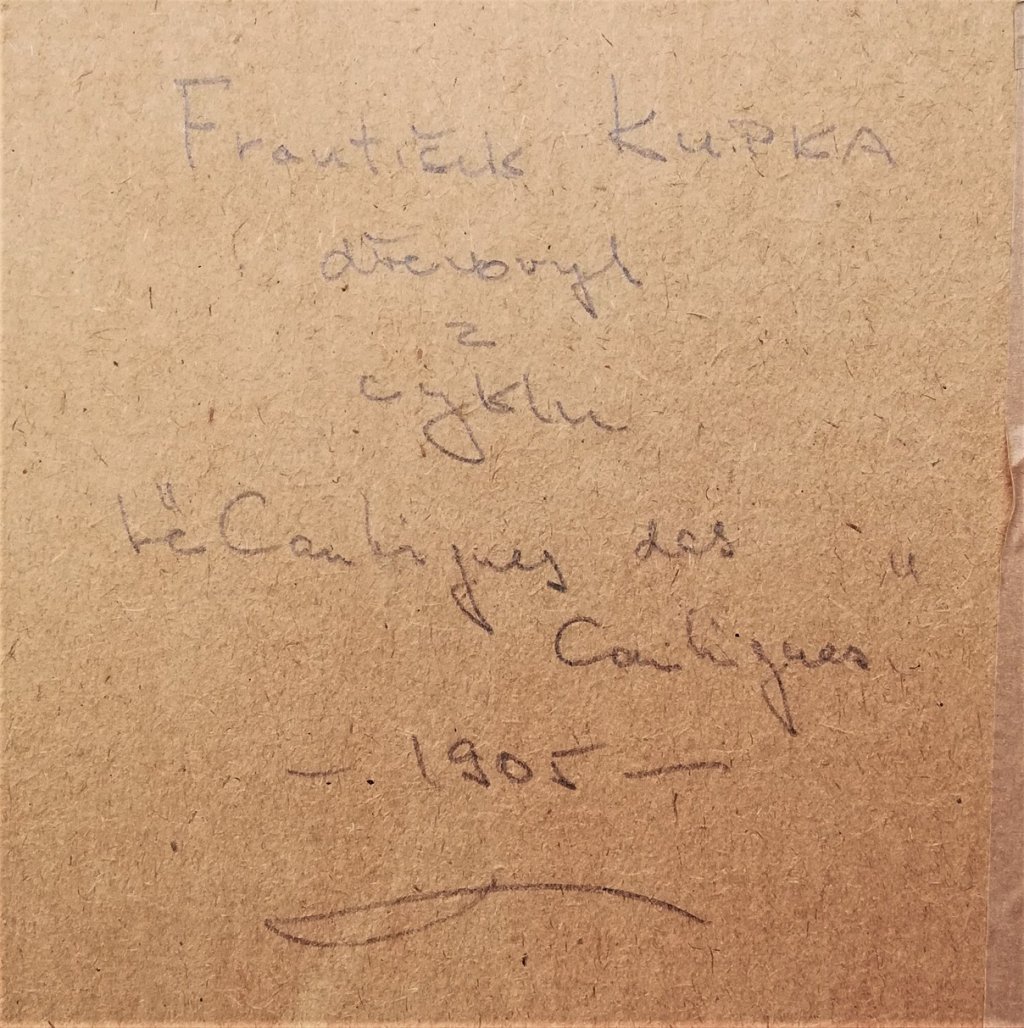 František KUPKA
dřevoryt
z
cyklu
"Cantigues des
Cantigues "
— 1905 —